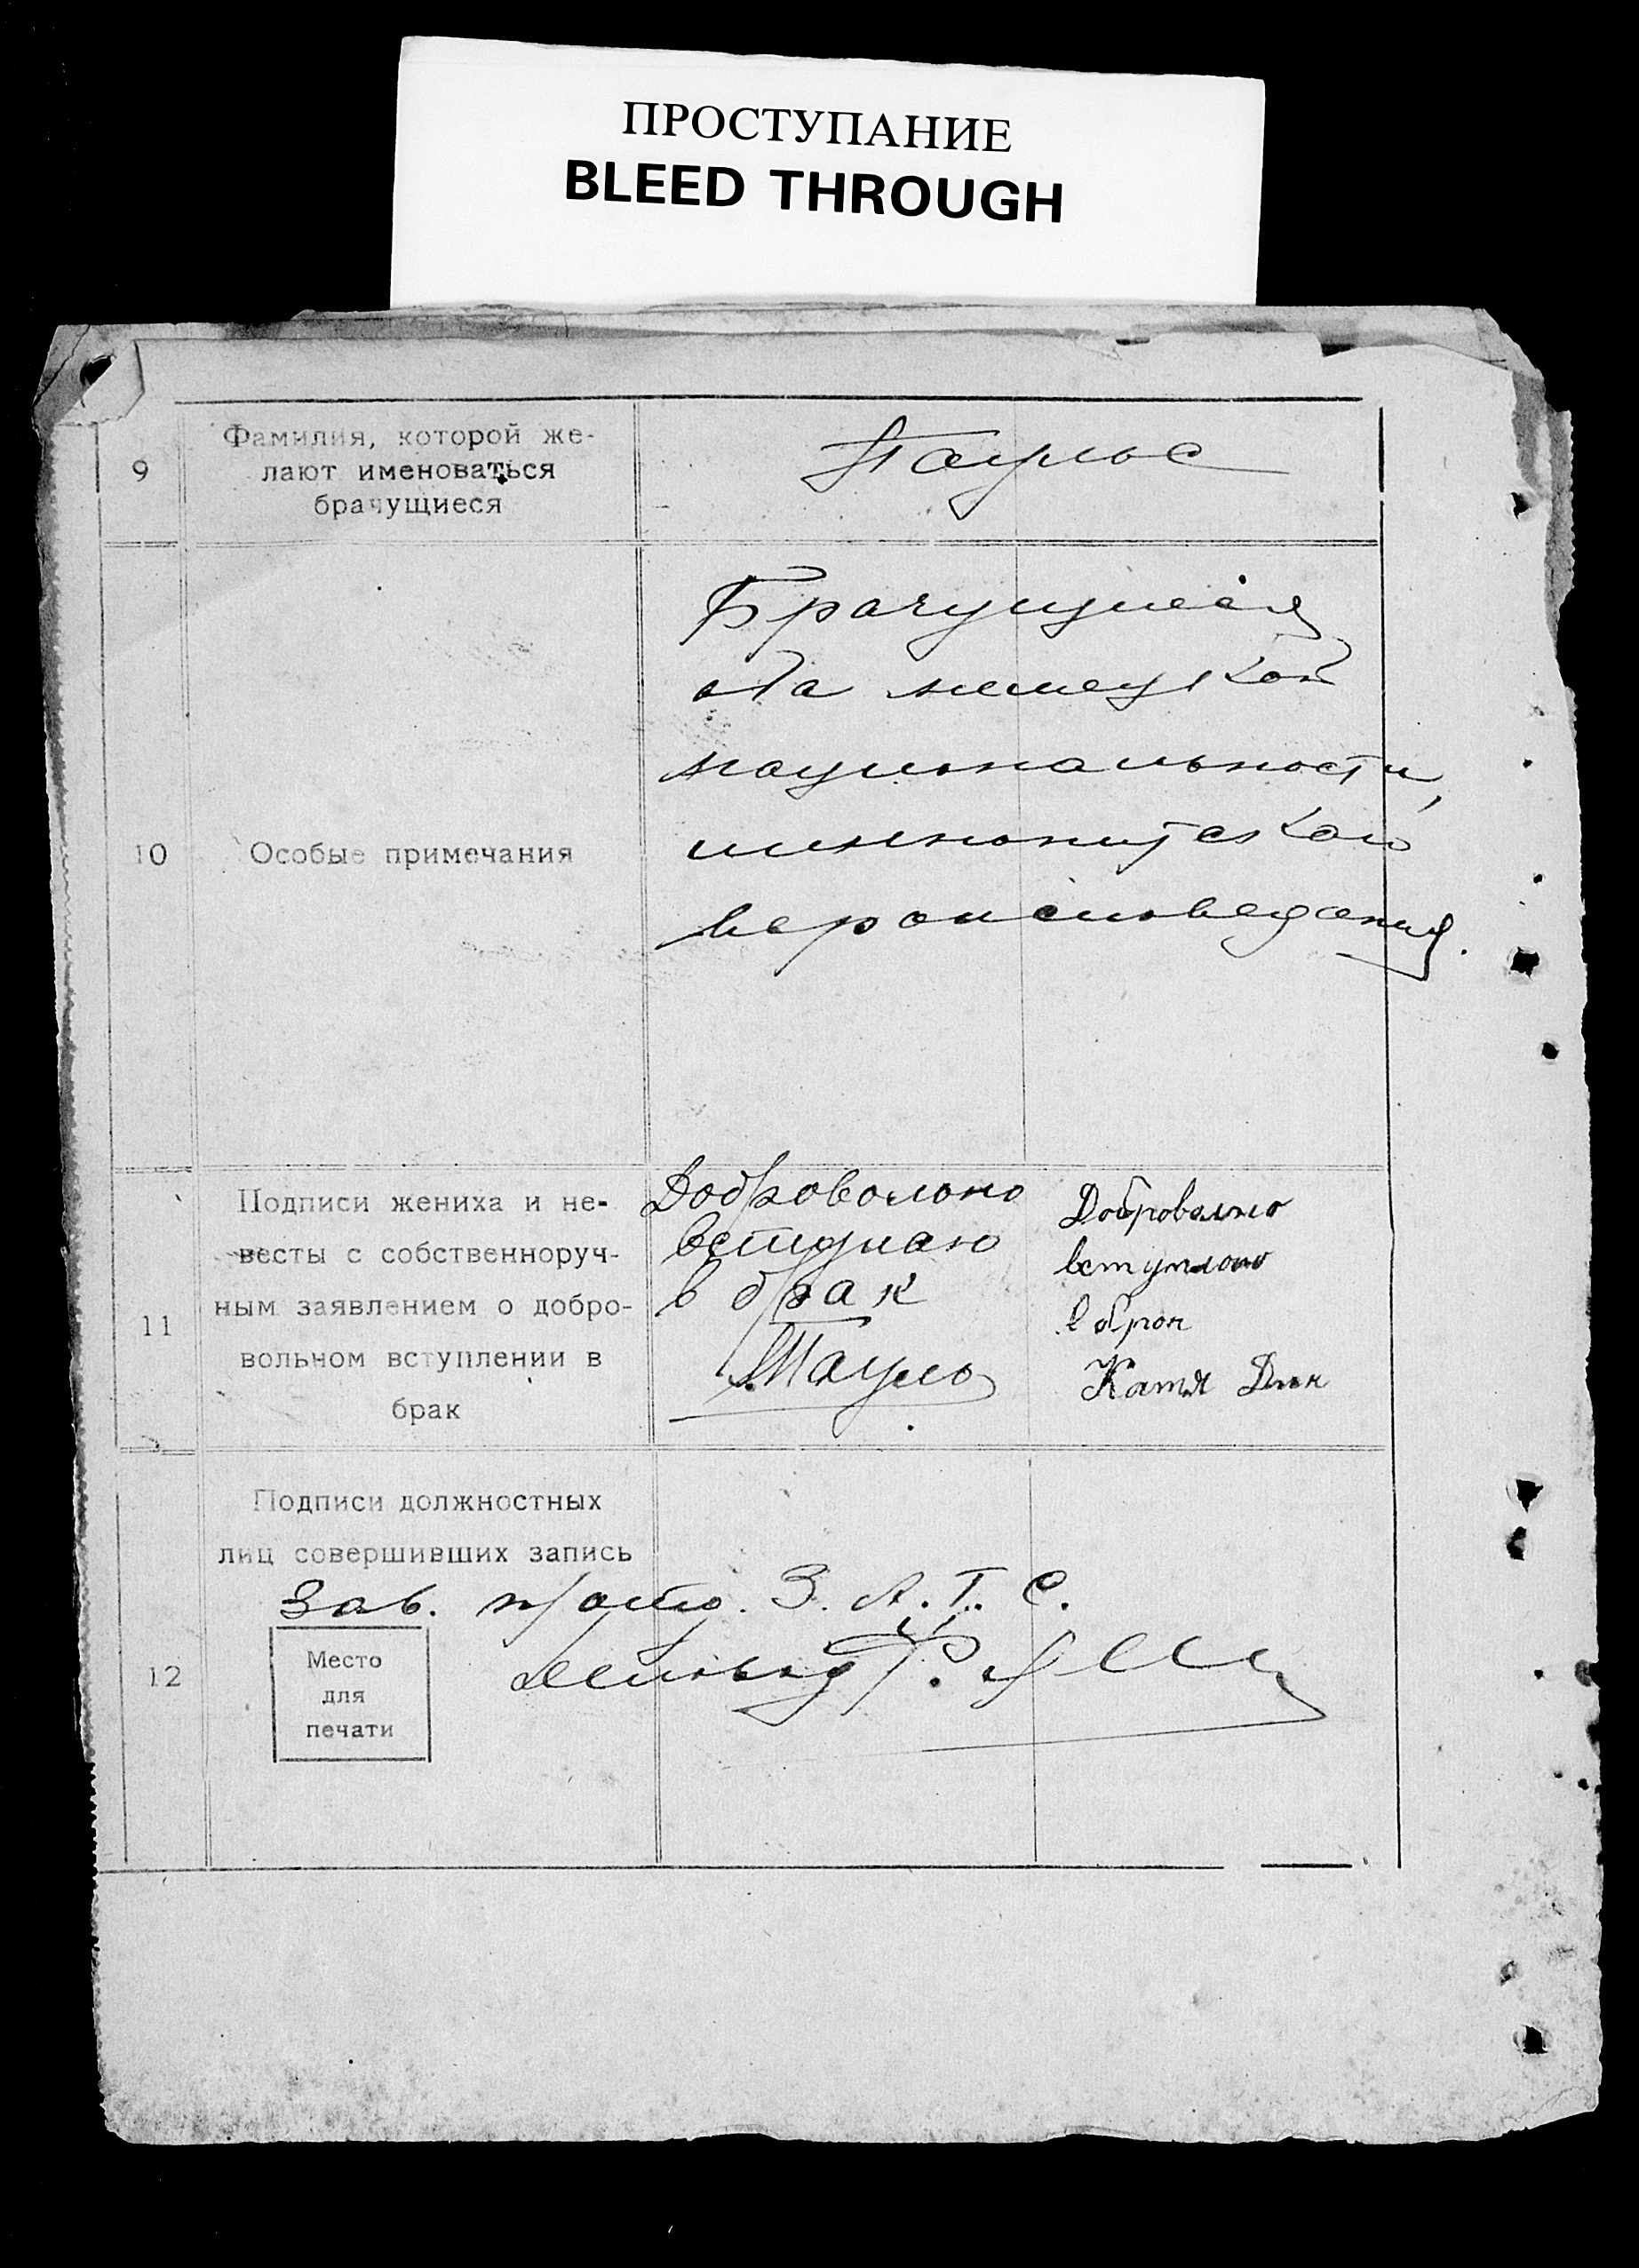 ПРОСТУПАНИЕ
BLEED THROUGH
9
Фамилия, которой же-
лают именоваться
брачущиеся
Паульс
10
Особые примечания
Брачущиеся
оба немецкой
национальности,
меннонитской
вероисповедания.
11
Подписи жениха и не-
весты с собственноруч-
ным заявлением о добро-
вольном вступлении в
брак
Добровольно
вступаю
в брак
Добровално
вступлоно
в брак
Катя Дик
12
Подписи должностных
лиц совершивших запись
Зав. З. А. Г. С.
Место
для
печати